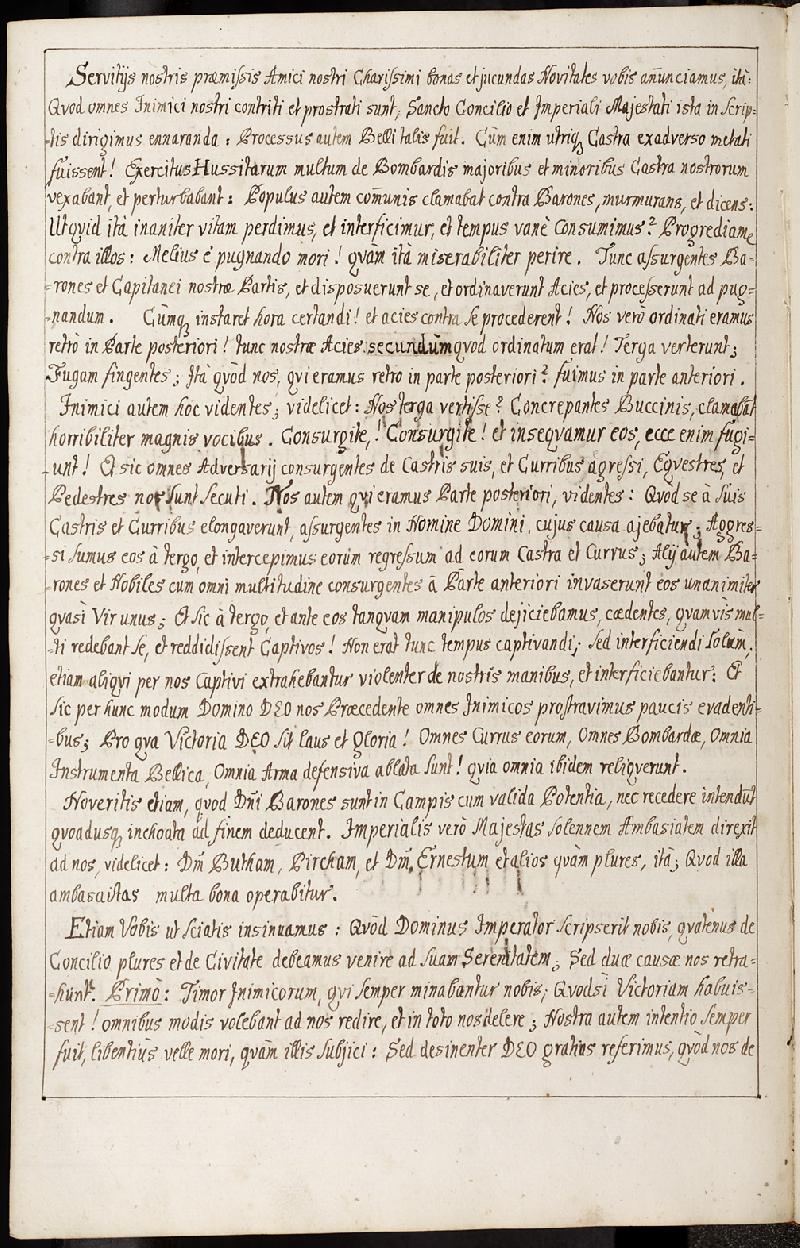 Servitijs nostris præmissis Amici nostri Charissimi bonas et jucundas Novitates vobis añunciamus, ita:
Qvod omnes Inimici nostri contriti et prostrati sunt, Sancto Concilio et Imperiali Majestati ista in Scrip=
=tis dirigimus ennaranda: Processus autem Belli talis fuit. Cum enim utriq, Castra exadverso metati
fuissent! Exercitus Hussitarum multum de Bombardis majoribus et minoribus Castra nostrorum
vexabant, et perturbabant: Populus autem com̃unis clamabat contra Barones, murmurans, et dicens:
Ut qvid ità inaniter vitam perdimus, et interficimur, et tempus vanè Consumimus? Progrediam
contra illos: Melius ē pugnando mori! qvàm ità miserabiliter perire. Tunc assurgentes Ba=
=rones et Capitanei nostræ Partis, et disposuerunt se, et ordinaverunt Acies, et processerunt ad pug=
=nandum. Cùmq, instaret hora certandi! et acies contra se procederent! Nos verò ordinati eramus
retrò in Parte posteriori! tunc nostræ Acies secundùm qvod ordinatum erat! Terga verterunt;
Fugam fingentes; Ità qvòd nos, qvi eramus retro in parte posteriori? fuimus in parte anteriori.
Inimici autem hoc videntes; videlicet: Nos terga vertisse? Concrepantes Buccinis, clamabāt
horribiliter magnis vocibus. Consurgite,! Consurgite! et inseqvamur eos, ecce enim fugi=
=unt! Et sic omnes Adversarij consurgentes de Castris suis, et Curribus agressi, Eqvestres, et
Pedestres nos sunt Secuti. Nos autem qvi eramus Parte posteriori, videntes: Qvod se à suis
Castris et Curribus elongaverunt, assurgentes in Nomine Domini, cujus causa ajebatur; Aggres=
=si sumus eos à tergo, et intercepimus eorùm regressum ad eorum Castra et Currus; Alij autem Ba=
=rones et Nobiles cum omni multitudine consurgentes à Parte anteriori invaserunt eos unanimiter
qvasi Vir unus; Et Sic à tergo, et ante eos tanqvam manipulos dejiciebamus, cædentes, qvamvis mul=
=ti redebant se, et reddidissent Captivos! Non erat tunc tempus captivandi, Sed interficiendi Solùm,
etiam aliqvi per nos Captivi extrahebantur violenter de nostris manibus, et interficiebantur: Et
Sic per hunc modum Domino DEO nos Præcedente omnes Inimicos prostravimus paucis evadenti=
=bus; Pro qva Victoria DEO Sit laus et gloria! Omnes Currus eorum, Omnes Bombardæ, Omnia
Instrumenta Bellica, Omnia Arma defensiva ablata Sunt! qvia omnia ibidem reliqverunt.
Noveritis etiam, qvod Dn̄i Barones sunt in Campis cum valida Potentia, nec recedere intendūt
qvoadusq, inchoata ad finem deducent. Imperialis verò Majestas Solennem Ambasiatem direxit
ad nos, videlicet: Dn̄ Butham, Pirckan, et Dn̄, Ernestum et alios quàm plures, ità; Qvod illa
ambasaitas multa bona operabitur.
Etiam Vobis ut Sciatis insinuamus: Qvòd Dominus Imperator Scripserit nobis, qvatenus de
Concilio plures et de Civitate debeamus venire ad Suam Serenitatem; Sed duæ causæ nos retra=
=hunt. Primò: Timor Inimicorum, qvi Semper minabantur nobis; Qvodsi Victoriam habuis=
=sent! omnibus modis volebant ad nos redire, et in toto nos delere; Nostra autem intentio Semper
fuit, libentiùs velle mori, quàm illis Subjici: Sed desinenter DEO gratias referimus, qvòd nos de